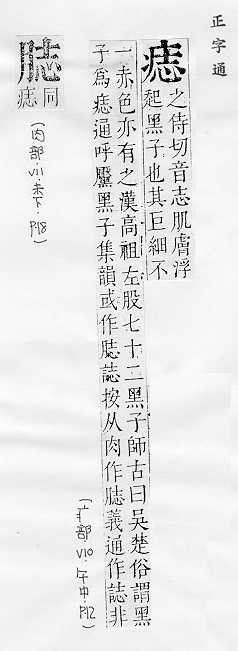 正字通
痣
之侍切音志肌膚浮
起黑子也其巨細不
一赤色亦有之漢高祖左股七十二黑子師古曰吳楚俗謂黑
子爲痣通呼黶黑子集韻或作䏯誌按从肉作䏯義通作誌非
(疒部.V10.午中.P12)
䏯
同
痣
(肉部.V11.未下.P18)